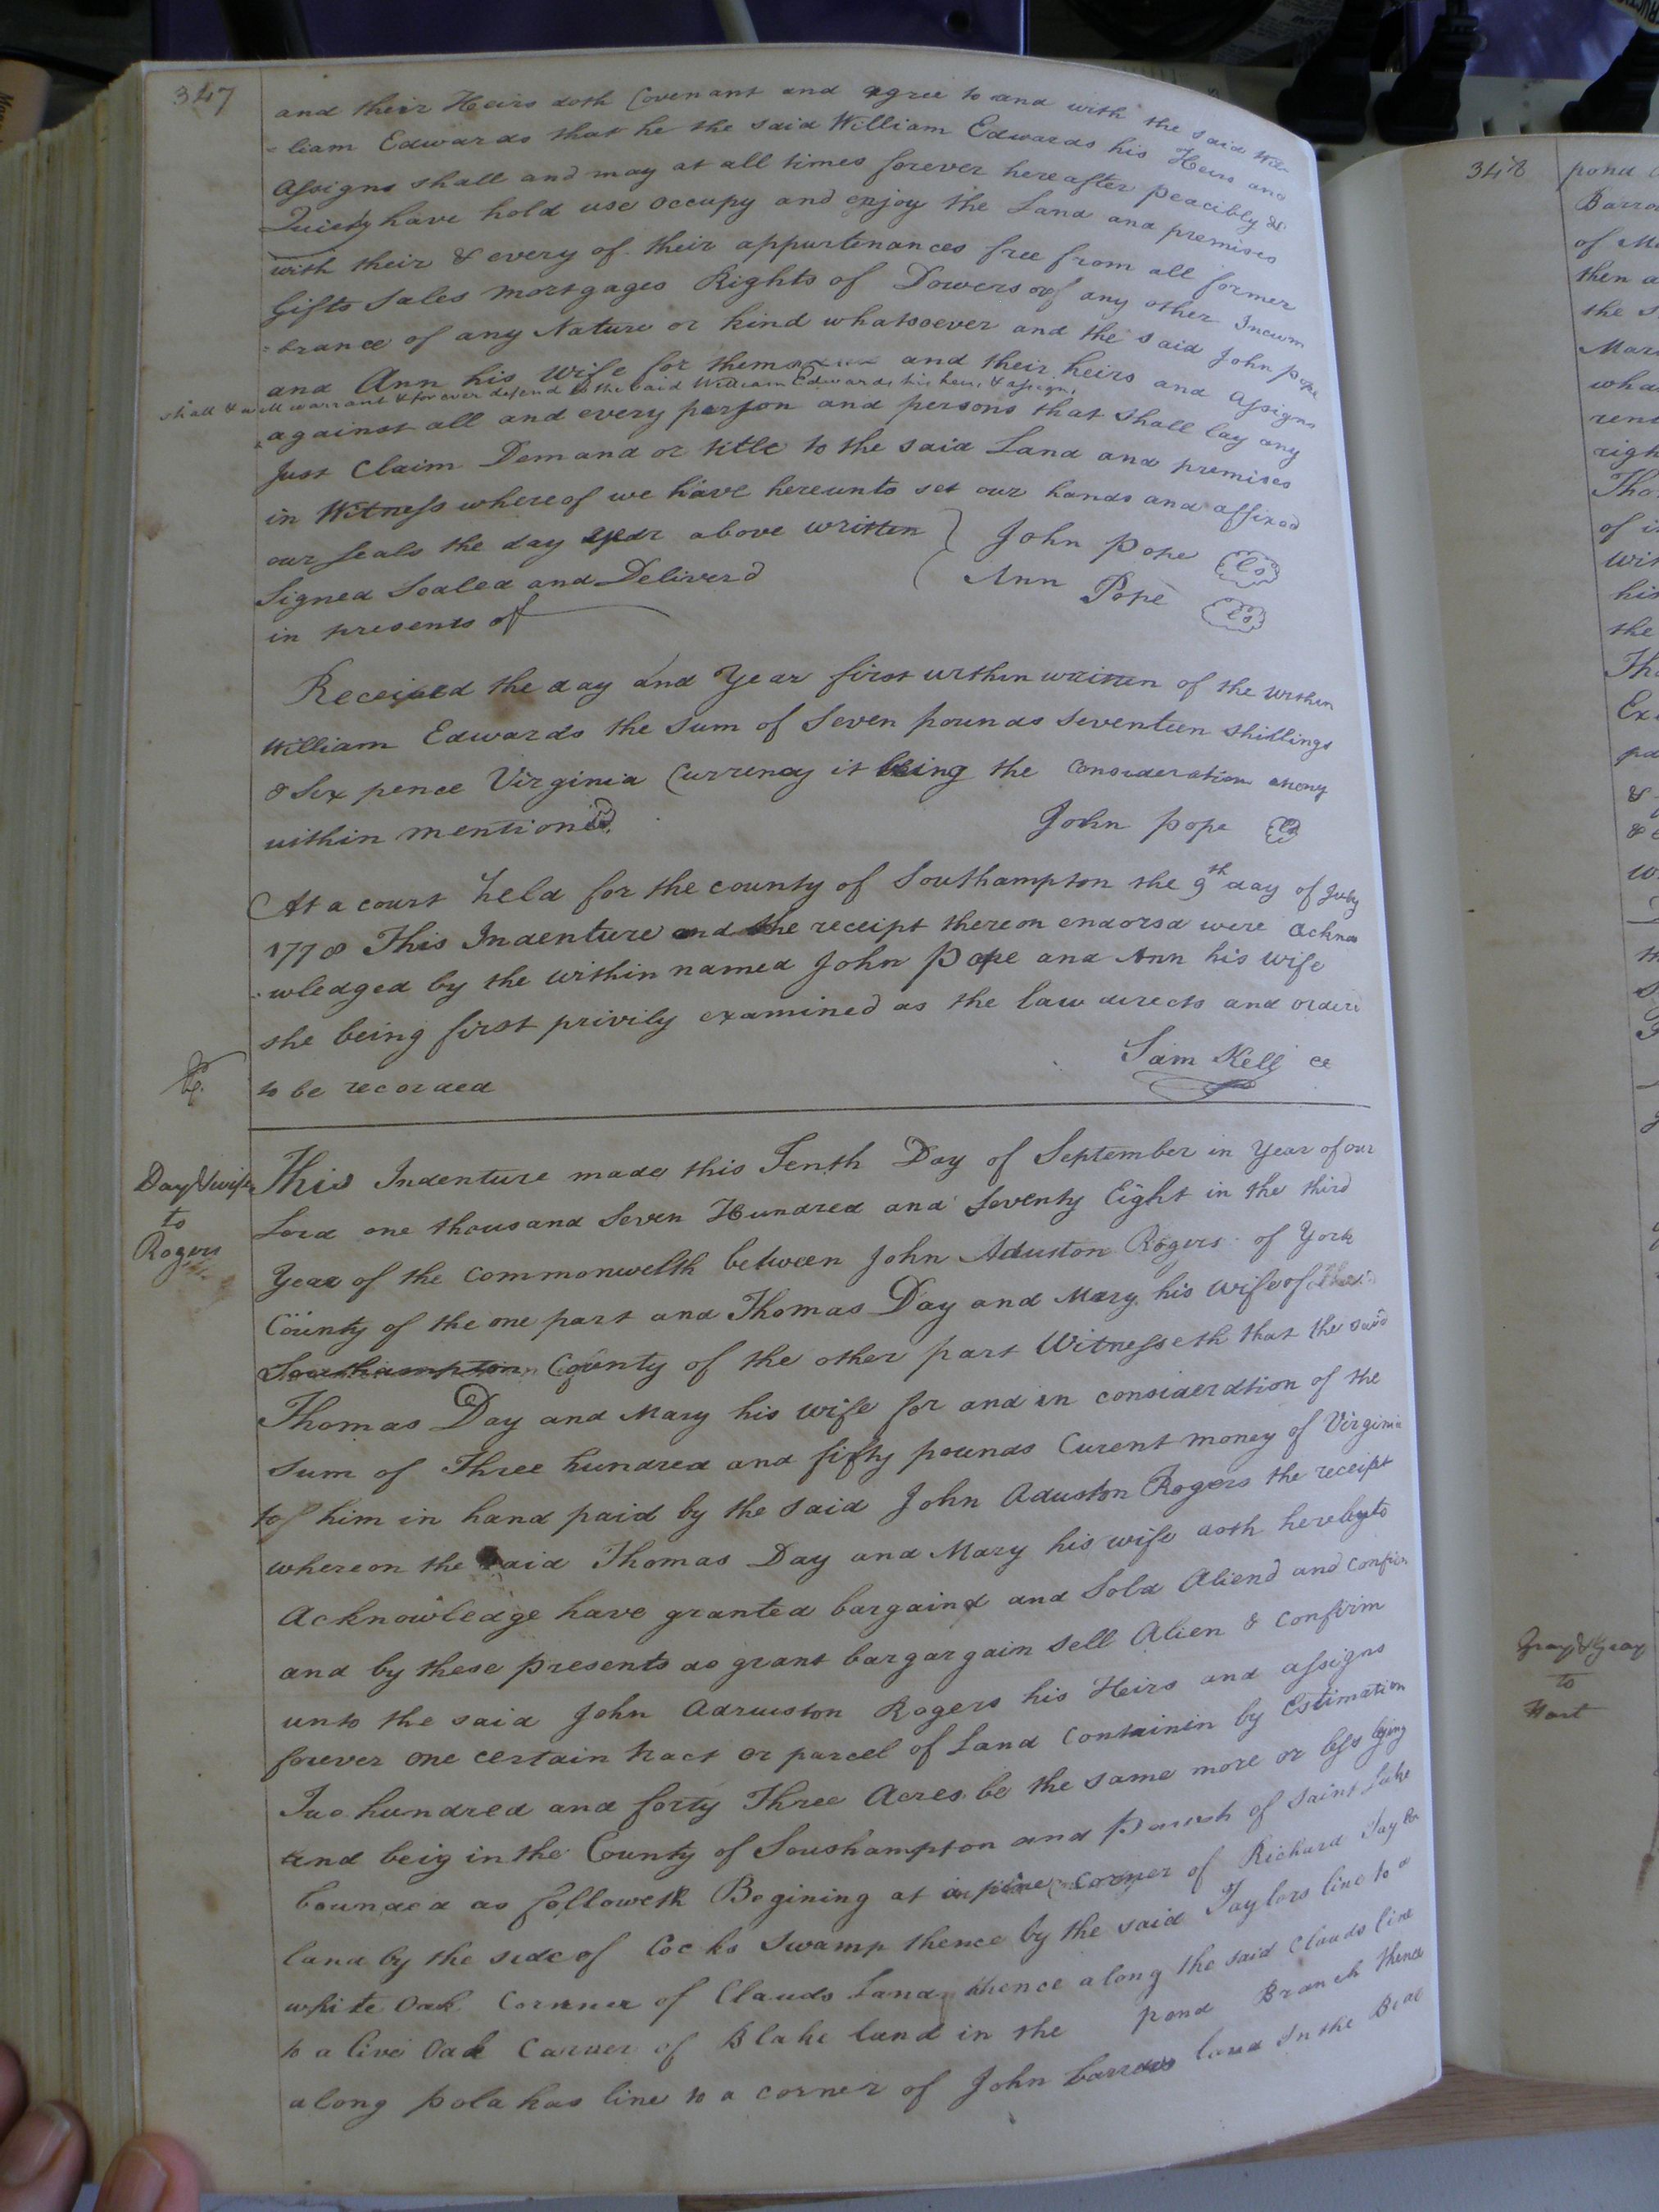 347
and their Heirs doth Covenant and agree to and with the said Wil
=liam Edwards that he the said William Edwards his Heirs and
Assigns shall and may at all times forever hereafter peacibly &
Quietly have hold use occupy and enjoy the Land and premises
with their & every of their appurtenances free from all former
Gifts Sales mortgages Rights of Dowers or of any other Incum
=brance of any Nature or kind whatsoever and the said John Pope
and Ann his wife for themselves and their heirs and Assigns
shall & will warrant & forever defend to the said William Edwards his heirs & assigns
against all and every person and persons that shall lay any
Just Claim Demand or title to the said Land and premises
in Witness whereof we have hereunto set our hands and affixed
our seals the day year above written } John Pope Ls
Signed Sealed and Deliverd Ann Pope Ls
in presents of
Received the day and Year first within written of the within
William Edwards the sum of Seven pounds Seventeen Shillings
& Six pence Virginia Currency it being the consideration money
within mentioned John Pope Ls
At a court held for the county of Southampton the 9th day of July
1778 This Indenture and the receipt thereon endorsd were ackno
=wledged by the within named John Pope and Ann his wife
she being first privily examined as the law directs and orderd
to be recorded Sam Kell
Day & wife
to
Rogers
This Indenture made this Tenth Day of September in Year of our
Lord one thousand Seven Hundred and Seventy Eight in the third
Year of the commonwelth between John Aduston Rogers of York
County of the one part and Thomas Day and Mary his wife of
Southampton County of the other part Witnesseth that the said
Thomas Day and Mary his wife for and in consideration of the
Sum of Three hundred and fifty pounds Curent money of Virginia
to him in hand paid by the said John Aduston Rogers the receipt
whereon the said Thomas Day and Mary his wife doth hereby to
Acknowledge have granted bargaind and Sold Aliend and confirm
and by these presents do grant bargargain sell Alien & confirm
unto the said John Adruston Rogers his Heirs and assigns
forever one certain tract or parcel of Land Containin by Estimation
Two hundred and forty Three Acres be the same more or less lying
and beig in the County of Southampton and Parish of Saint Luke
bounded as followeth Begining at a pine corner of Richard Taylor
land by the side of Cocks Swamp thence by the said Taylors line to a
white Oak Corner of Clauds Land thence along the said Clauds line
to a live Oak Corner of Blake land in the pond Branch thence
along line to a corner of John Barrows land In the
348
pond
of
then a
the
wha
his
the
Gray & Gray
to
Hart